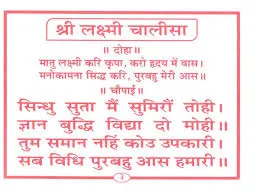 श्री लक्ष्मी चालीसा
॥ दोहा ॥
मातु लक्ष्मी करि कृपा, करो हृदय में वास।
मनोकामना सिद्ध करि, पुरबहु मेरी आस॥
॥ चौपाई ॥
सिन्धु सुता मैं सुमिरौं तोही।
ज्ञान बुद्धि विद्या दो मोही॥
तुम समान नहिं कोउ उपकारी।
सब विधि पुरबहु आस हमारी॥